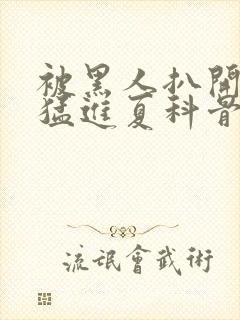 被黑人扒開
猛進夏科普
流氓會武術